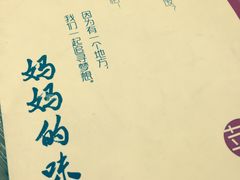 因为有一个地方，
我们一起追寻梦想。
妈妈的味